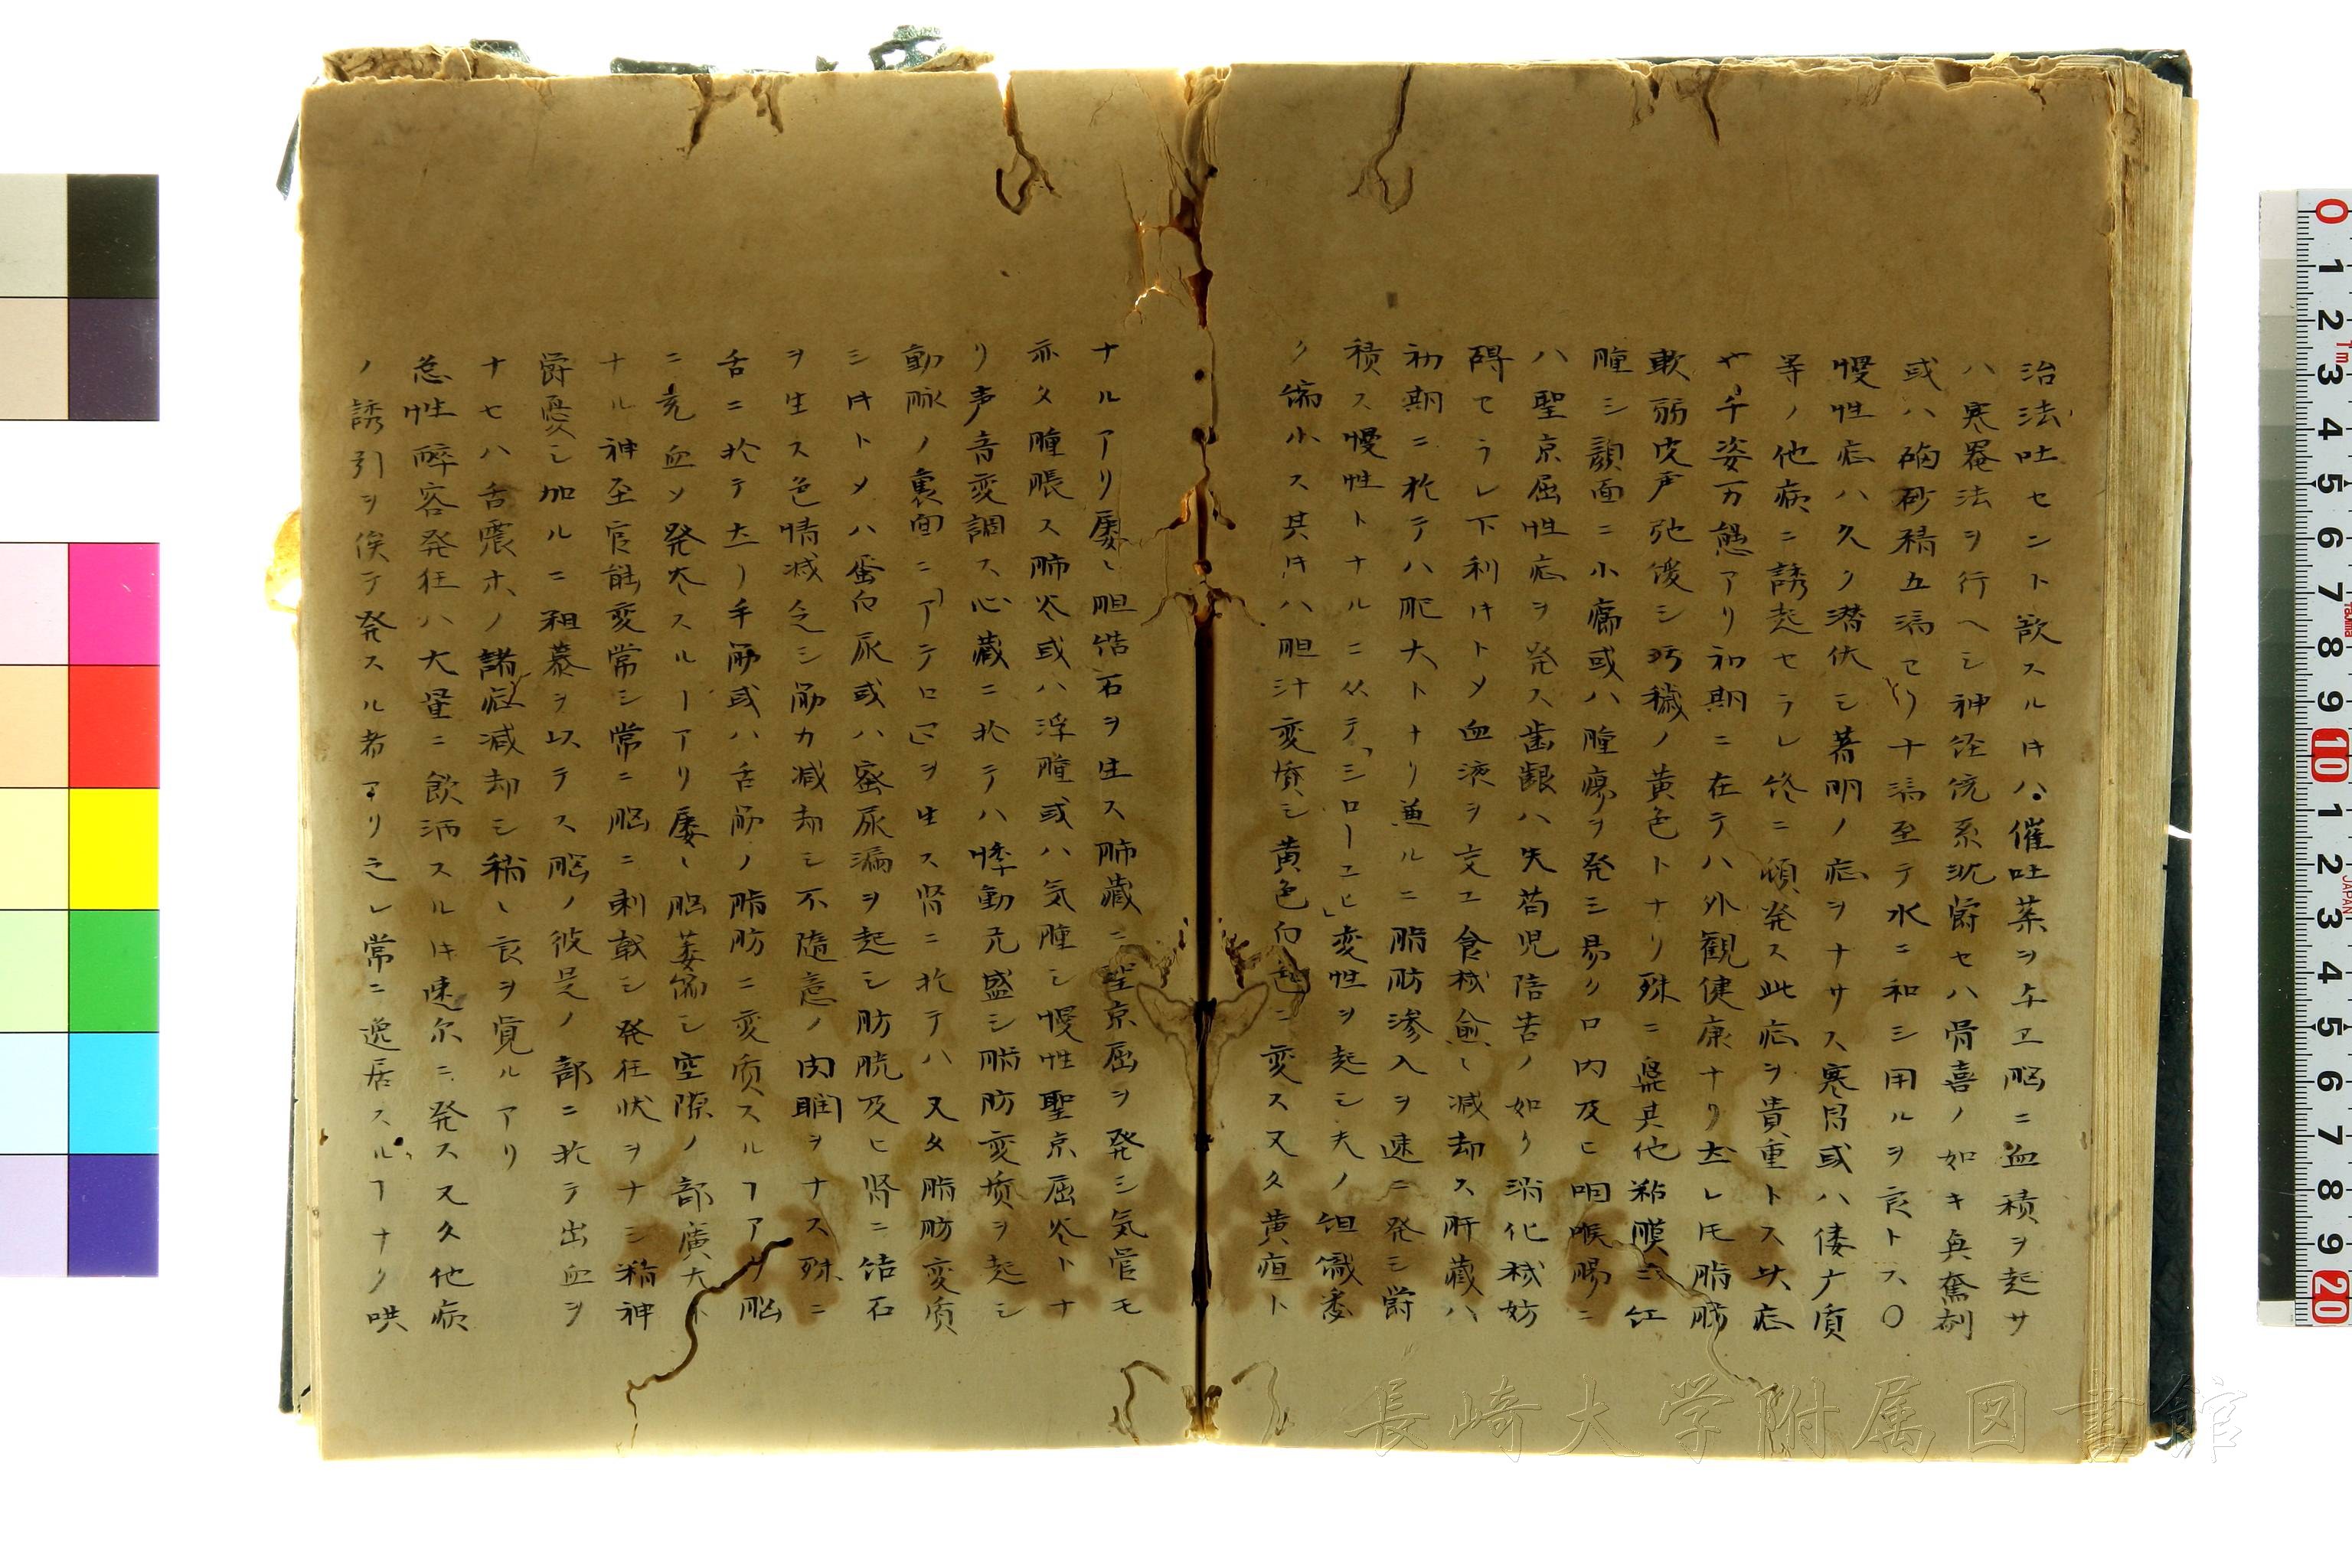 治法吐セント欲スル时ハ催吐薬ヲ与エ脳ニ血積ヲ起サ
ハ寒罨法ヲ行ヘシ神経統系沈欝セハ骨喜ノ如キ興奮剤
或ハ硇砂精五滴ヨリ十滴至テ水ニ和シ用ルヲ良トス〇
慢性症ハ久ク潜伏シ著明ノ症ヲナサス寒冒或ハ僂麻質
等ノ他病ニ誘起セラレ終ニ頓発ス此症ヲ貴重トス此症
ヤ千姿万態アリ初期ニ在テハ外観健康ナリ然レ𪜈脂肪
軟弱皮膚弛緩シ汚穢ノ黄色トナリ殊ニ鼻其他粘膜ニ紅
腫シ顔面ニ小瘍或ハ腫瘍ヲ発シ易ク口内及ヒ咽喉腸ニ
ハ聖京屈性症ヲ発ス歯齦ハ失苟児陪苦ノ如ク消化機妨
碍セラレ下利时トメ血液ヲ交エ食機愈〻減却ス肝蔵ハ
初期ニ於テハ肥大トナリ兼ルニ脂肪滲入ヲ速ニ発シ欝
積ス慢性トナルニ从テ「シローユヒ」変性ヲ起シ夫ノ
ク縮小ス其时ハ胆汁変質シ黄色白色ニ変ス又タ黄疸ト
ナルアリ屡〻胆結石ヲ生ス肺蔵ニ聖京屈ヲ発シ気管モ
亦タ腫脹ス肺炎或ハ浮腫或ハ気腫シ慢性聖京屈炎トナ
リ声音変調ス心蔵ニ於テハ悸動亢盛シ脂肪変質ヲ起シ
動脉ノ裏面ニ「アテロマ」ヲ生ス肾ニ於テハ又タ脂肪変质
シ时トメハ蛋白尿或ハ蜜尿漏ヲ起シ膀胱及ヒ肾ニ結石
ヲ生ス色情减乏シ筋力减却シ不随意ノ肉瞤ヲナス殊ニ
舌ニ於テ然リ手筋或ハ舌筋ノ脂肪ニ変质スルヿアリ脳
ニ充血ソ発炎スルヿアリ屡〻脳萎縮シ空隙ノ部廣大ト
ナル神至官能変常シ常ニ脳ニ刺戟シ発狂状ヲナシ精神
欝憂シ加ルニ粗暴ヲ以テス脳ノ彼是ノ部ニ於テ出血ヲ
ナセハ舌震ホノ諸症减却シ稍〻良ヲ覚ルアリ
急性酔客発狂ハ大量ニ飲酒スル时速尓ニ発ス又タ他病
ノ誘引ヲ俟テ発スル者アリ之レ常ニ逸居スルヿナク哄
長崎大学附属図書館